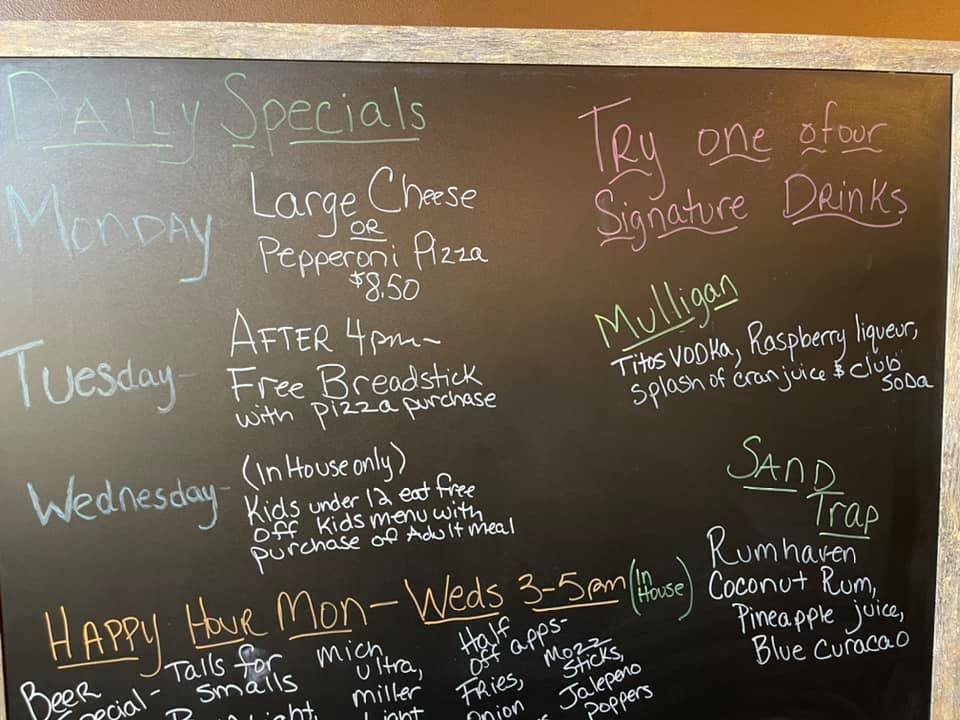 Daily Specials
Monday
Large Cheese
OR
Pepperoni Pizza
$8.50
Tuesday-
AFTER 4pm~
Free Breadstick
with pizza purchase
Wednesday-
(In House only)
Kids under 12 eat free
off Kids menu with
purchase of Adult meal
Happy Hour Mon-Weds 3-5pm (In House)
Beer
Special-
Talls for
Smalls
Mich
ultra,
miller
Light
Half
off apps-
Fries,
Onion
Mozz
Sticks,
Jalepeno
Poppers
Try one of our
Signature Drinks
Mulligan
Titos VODKA, Raspberry liqueur,
splash of cran juice & club
soda
Sand
Trap
Rumhaven
Coconut Rum,
Pineapple juice,
Blue curacao